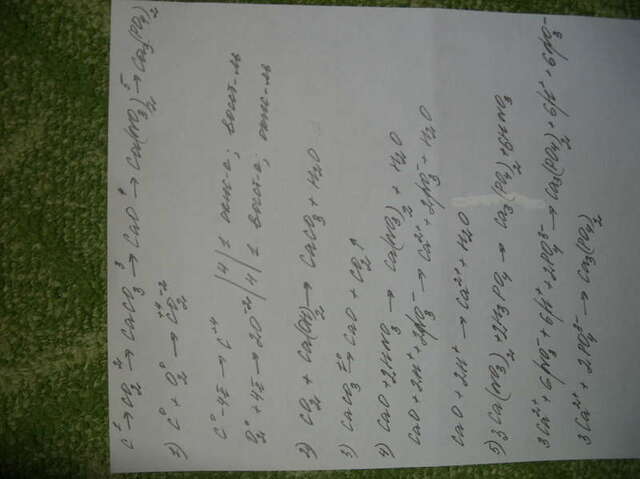 C → CO₂ → CaCO₃ → CaO → Ca(NO₃)₂ → Ca₃(PO₄)₂
1) C⁰ + O₂⁰ → C⁺⁴O₂⁻²
C⁰ - 4ē → C⁺⁴ | 4 | 1
O₂⁰ + 4ē → 2O⁻² | 4 | 1
2) CO₂ + Ca(OH)₂ → CaCO₃ + H₂O
3) CaCO₃ → CaO + CO₂↑
4) CaO + 2HNO₃ → Ca(NO₃)₂ + H₂O
CaO + 2H⁺ + 2NO₃⁻ → Ca²⁺ + 2NO₃⁻ + H₂O
CaO + 2H⁺ → Ca²⁺ + H₂O
5) 3Ca(NO₃)₂ + 2H₃PO₄ → Ca₃(PO₄)₂ + 6HNO₃
3Ca²⁺ + 6NO₃⁻ + 6H⁺ + 2PO₄³⁻ → Ca₃(PO₄)₂ + 6H⁺ + 6NO₃⁻
3Ca²⁺ + 2PO₄³⁻ → Ca₃(PO₄)₂